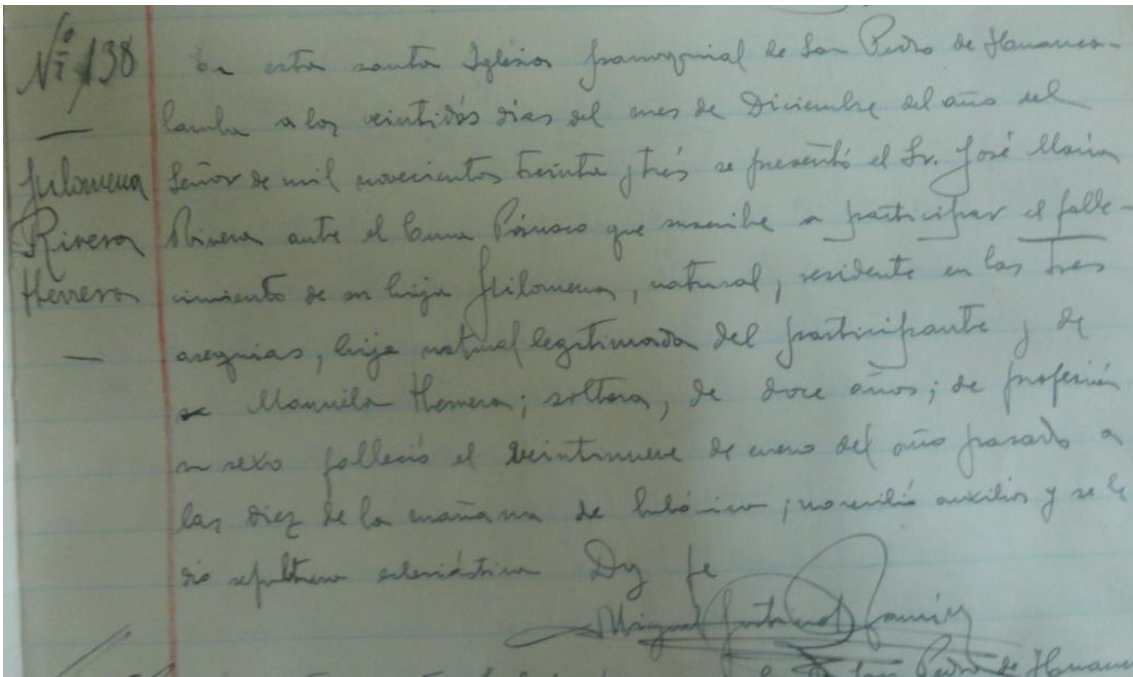 Nº 138
Filomena
Rivera
Herrera
En esta santa Iglesia parroquial de San Pedro de Huanca-
bamba a los veintidós días del mes de Diciembre del año del
Señor de mil novecientos treinta y trés se presentó el Sr. José María
Rivera ante el Cura Párroco que suscribe a participar el falle-
cimiento de su hija Filomena, natural, residente en las Tres
asequias, hija natural legitimada del participante y de
Manuela Herrera; soltera, de doce años; de profesión
su sexo falleció el veintinueve de enero del año pasado a
las diez de la mañana de bubónica; no recibió auxilios y se le
dió sepultura eclesiástica Doy fe
Miguel
San Pedro de Huanca